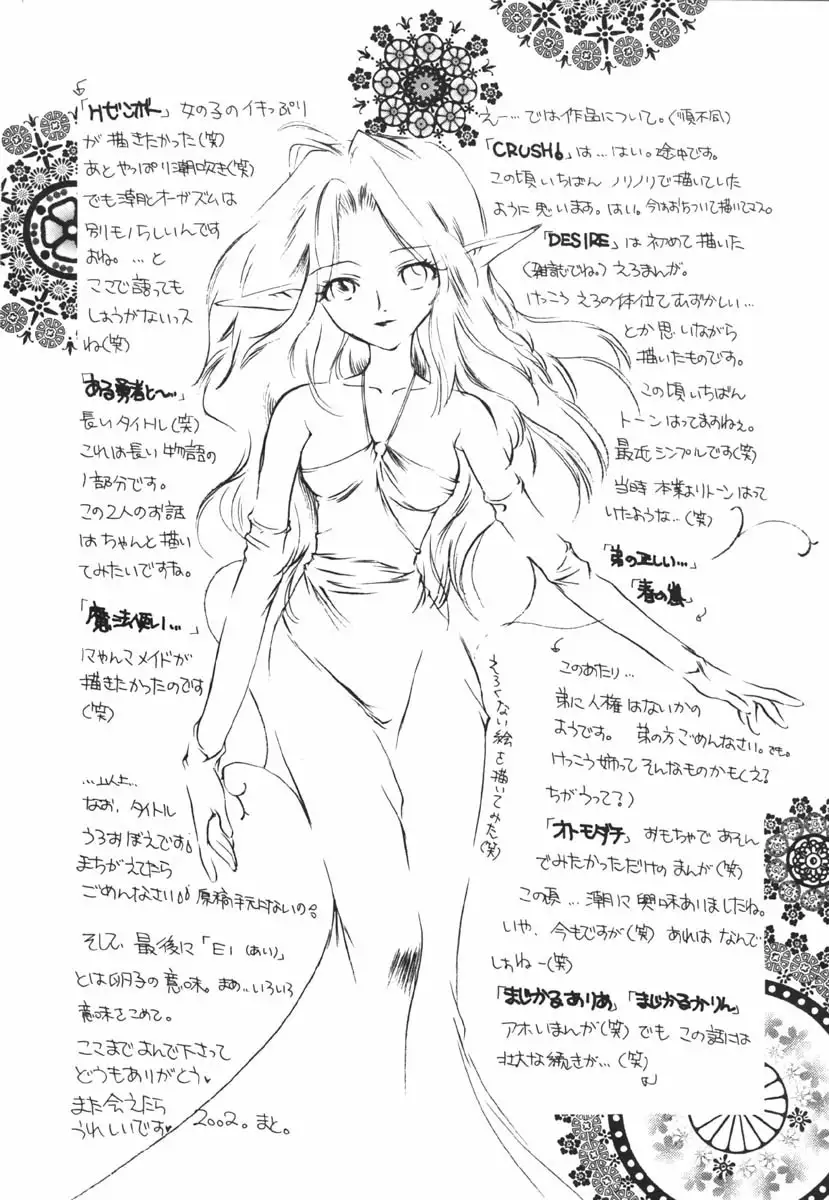 えー…では作品について。(順不同)
「CRUSH!」は…はい。途中です。
この頃いちばん ノリノリで描いていた
ように思います。はい。今はおちついて描いてマス。
「DESIRE」は初めて描いた
(雑誌でね。)えろまんが。
けっこう えろの体位てむずかしい…
とか思いながら
描いたものです。
この頃いちばん
トーンはってますねぇ。
最近シンプルです(笑)
当時 本業よりトーンはって
いたような…(笑)
「弟の正しい…」
「春の嵐」
このあたり…
弟に人権はないかの
ようです。弟の方ごめんなさい。でも。
けっこう姉って そんなものかもよ?
ちがうって?)
「オトモダチ」おもちゃであそん
でみたかっただけの まんが(笑)
この頃…潮に興味ありましたね。
いや、今もですが(笑) あれは なんで
しょねー(笑)
「まじかるありあ」「まじかるかりん」
アホいまんが(笑) でも この話には
壮大な続きが…(笑)
「Hゼンポー」女の子のイキっぷり
が描きたかった(笑)
あとやっぱり潮吹き(笑)
でも潮とオーガズムは
別モノらしいんです
よね。…と
ココで語っても
しょうがないっス
ね(笑)
「ある勇者と〜…」
長いタイトル(笑)
これは長い物語の
1部分です。
この2人のお話
はちゃんと描い
てみたいですね。
「魔法使い…」
にゃんこメイドが
描きたかったのです
(笑)
えろくない絵を描いてみた(笑)
…以上…
なお、タイトル
うろおぼえです。
まちがえてたら
ごめんなさい。原稿手元にないの。
そして 最後に「EI(あい)」
とは卵子の意味。まぁ…いろいろ
意味をこめて。
ここまでよんで下さって
どうもありがとう♥
また会えたら
うれしいです♥ 2002。まと。